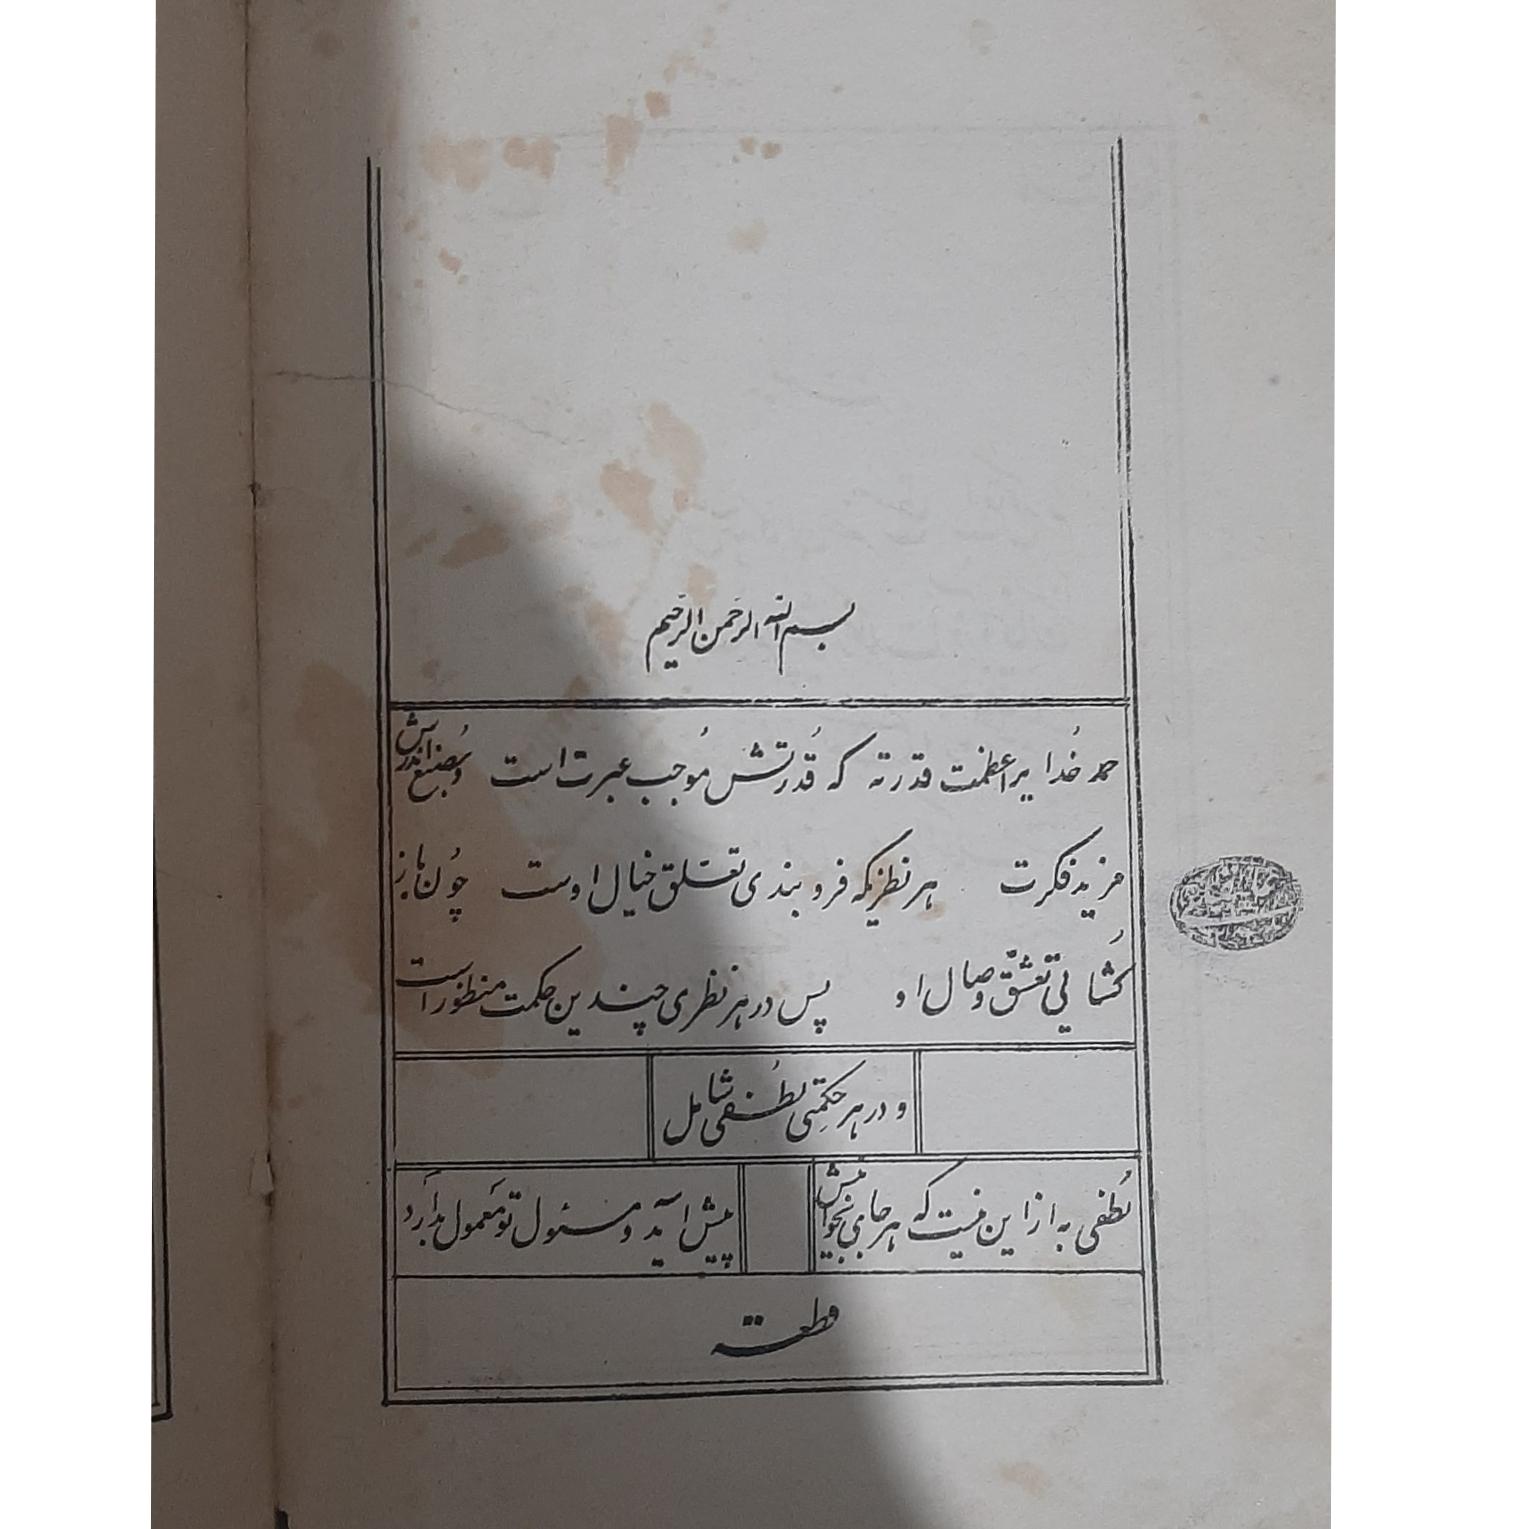 بسم الله الرحمن الرحیم
حمد خُدا یرا عظمت قدرته که قُدرتش مُوجب عبرت است وبصُنع اندرش
مزید فکرت هر نظریکه فرو بندی تعلق خیال اوست چُون باز
کُشائی تعشّق وصال او پس در هر نظری چندین حکمت منظور است
و در هر حکمتی لطُفی شامل
لُطفی به از این نیست که هر جا بیخوانیش پیش آید و مسئول تو مَعمول بدارَد
قطعه